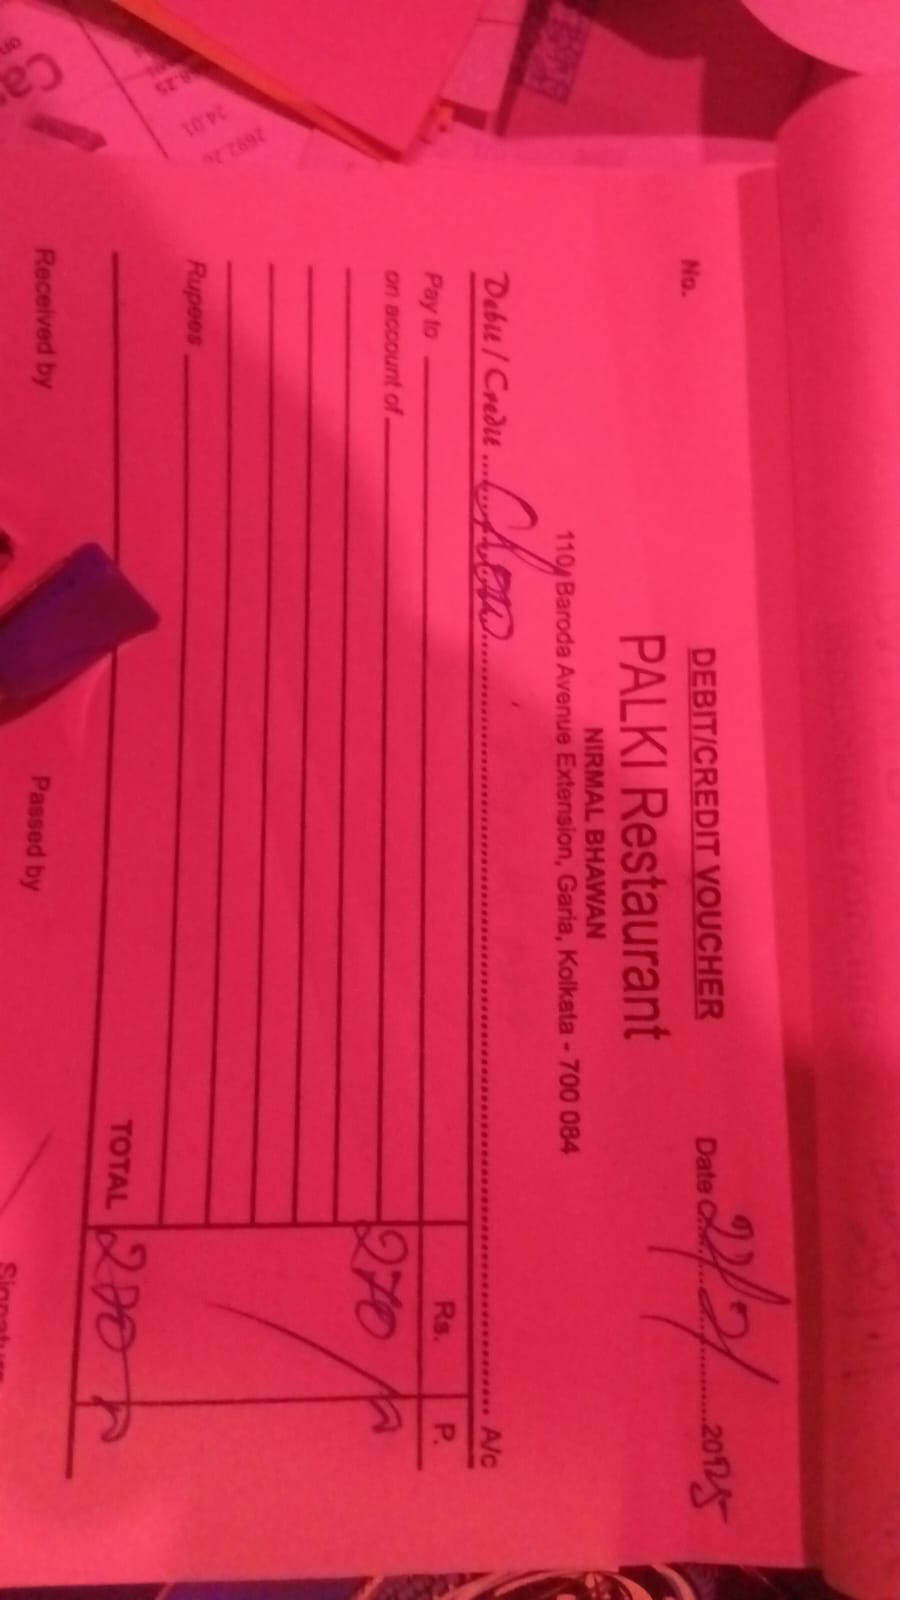 No.
DEBIT/CREDIT VOUCHER
PALKI Restaurant
Date 2025
NIRMAL BHAWAN
110, Baroda Avenue Extension, Garia, Kolkata - 700 084
Debit / Credit Chow A/c
Pay to Rs. P.
on account of 270
Rupees
TOTAL 270
Received by Passed by
Ca
on
24.01